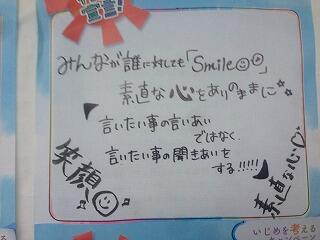 宣言!
みんなが誰に対しても「Smile☺☺」
素直な心をありのままに☆☆
言いたい事の言いあい
ではなく
言いたい事の聞きあいを
する!!!!!
笑顔☺♫
素直な心♡
いじめを考える
キャンペーン